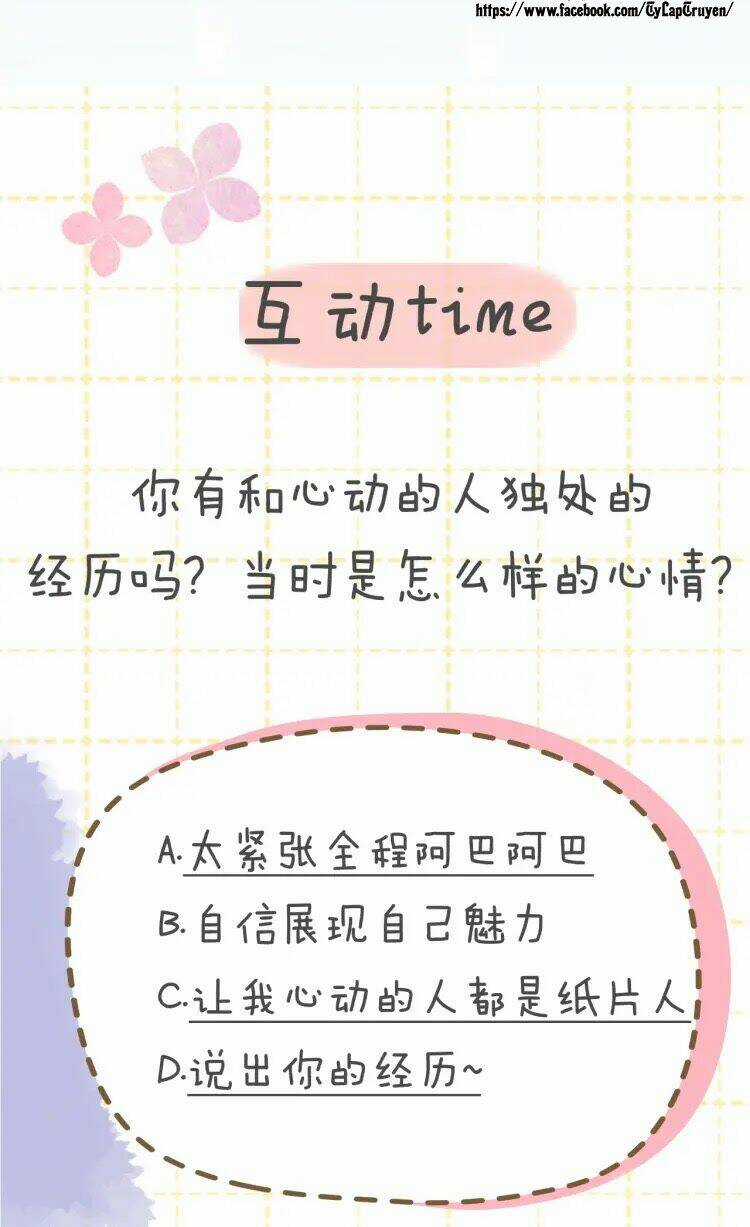 https://www.facebook.com/TyLapTruyen/
互动time
你有和心动的人独处的
经历吗？当时是怎么样的心情？
A.太紧张全程阿巴阿巴
B.自信展现自己魅力
C.让我心动的人都是纸片人
D.说出你的经历~